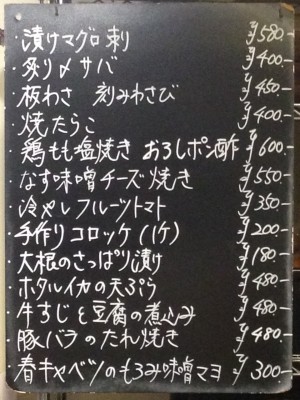 ・漬けマグロ刺 ¥580.-
・炙り〆サバ ¥400.-
・板わさ 刻みわさび ¥450.-
・焼たらこ ¥400.-
・鶏もも塩焼き おろしポン酢 ¥600.-
・なす味噌チーズ焼き ¥550.-
・冷やしフルーツトマト ¥350.-
・手作りコロッケ(1ケ) ¥200.-
・大根のさっぱり漬け ¥180.-
・ホタルイカの天ぷら ¥480.-
・牛すじと豆腐の煮込み ¥480.-
・豚バラのたれ焼き ¥480.-
・春キャベツのもろみ味噌マヨ ¥300.-